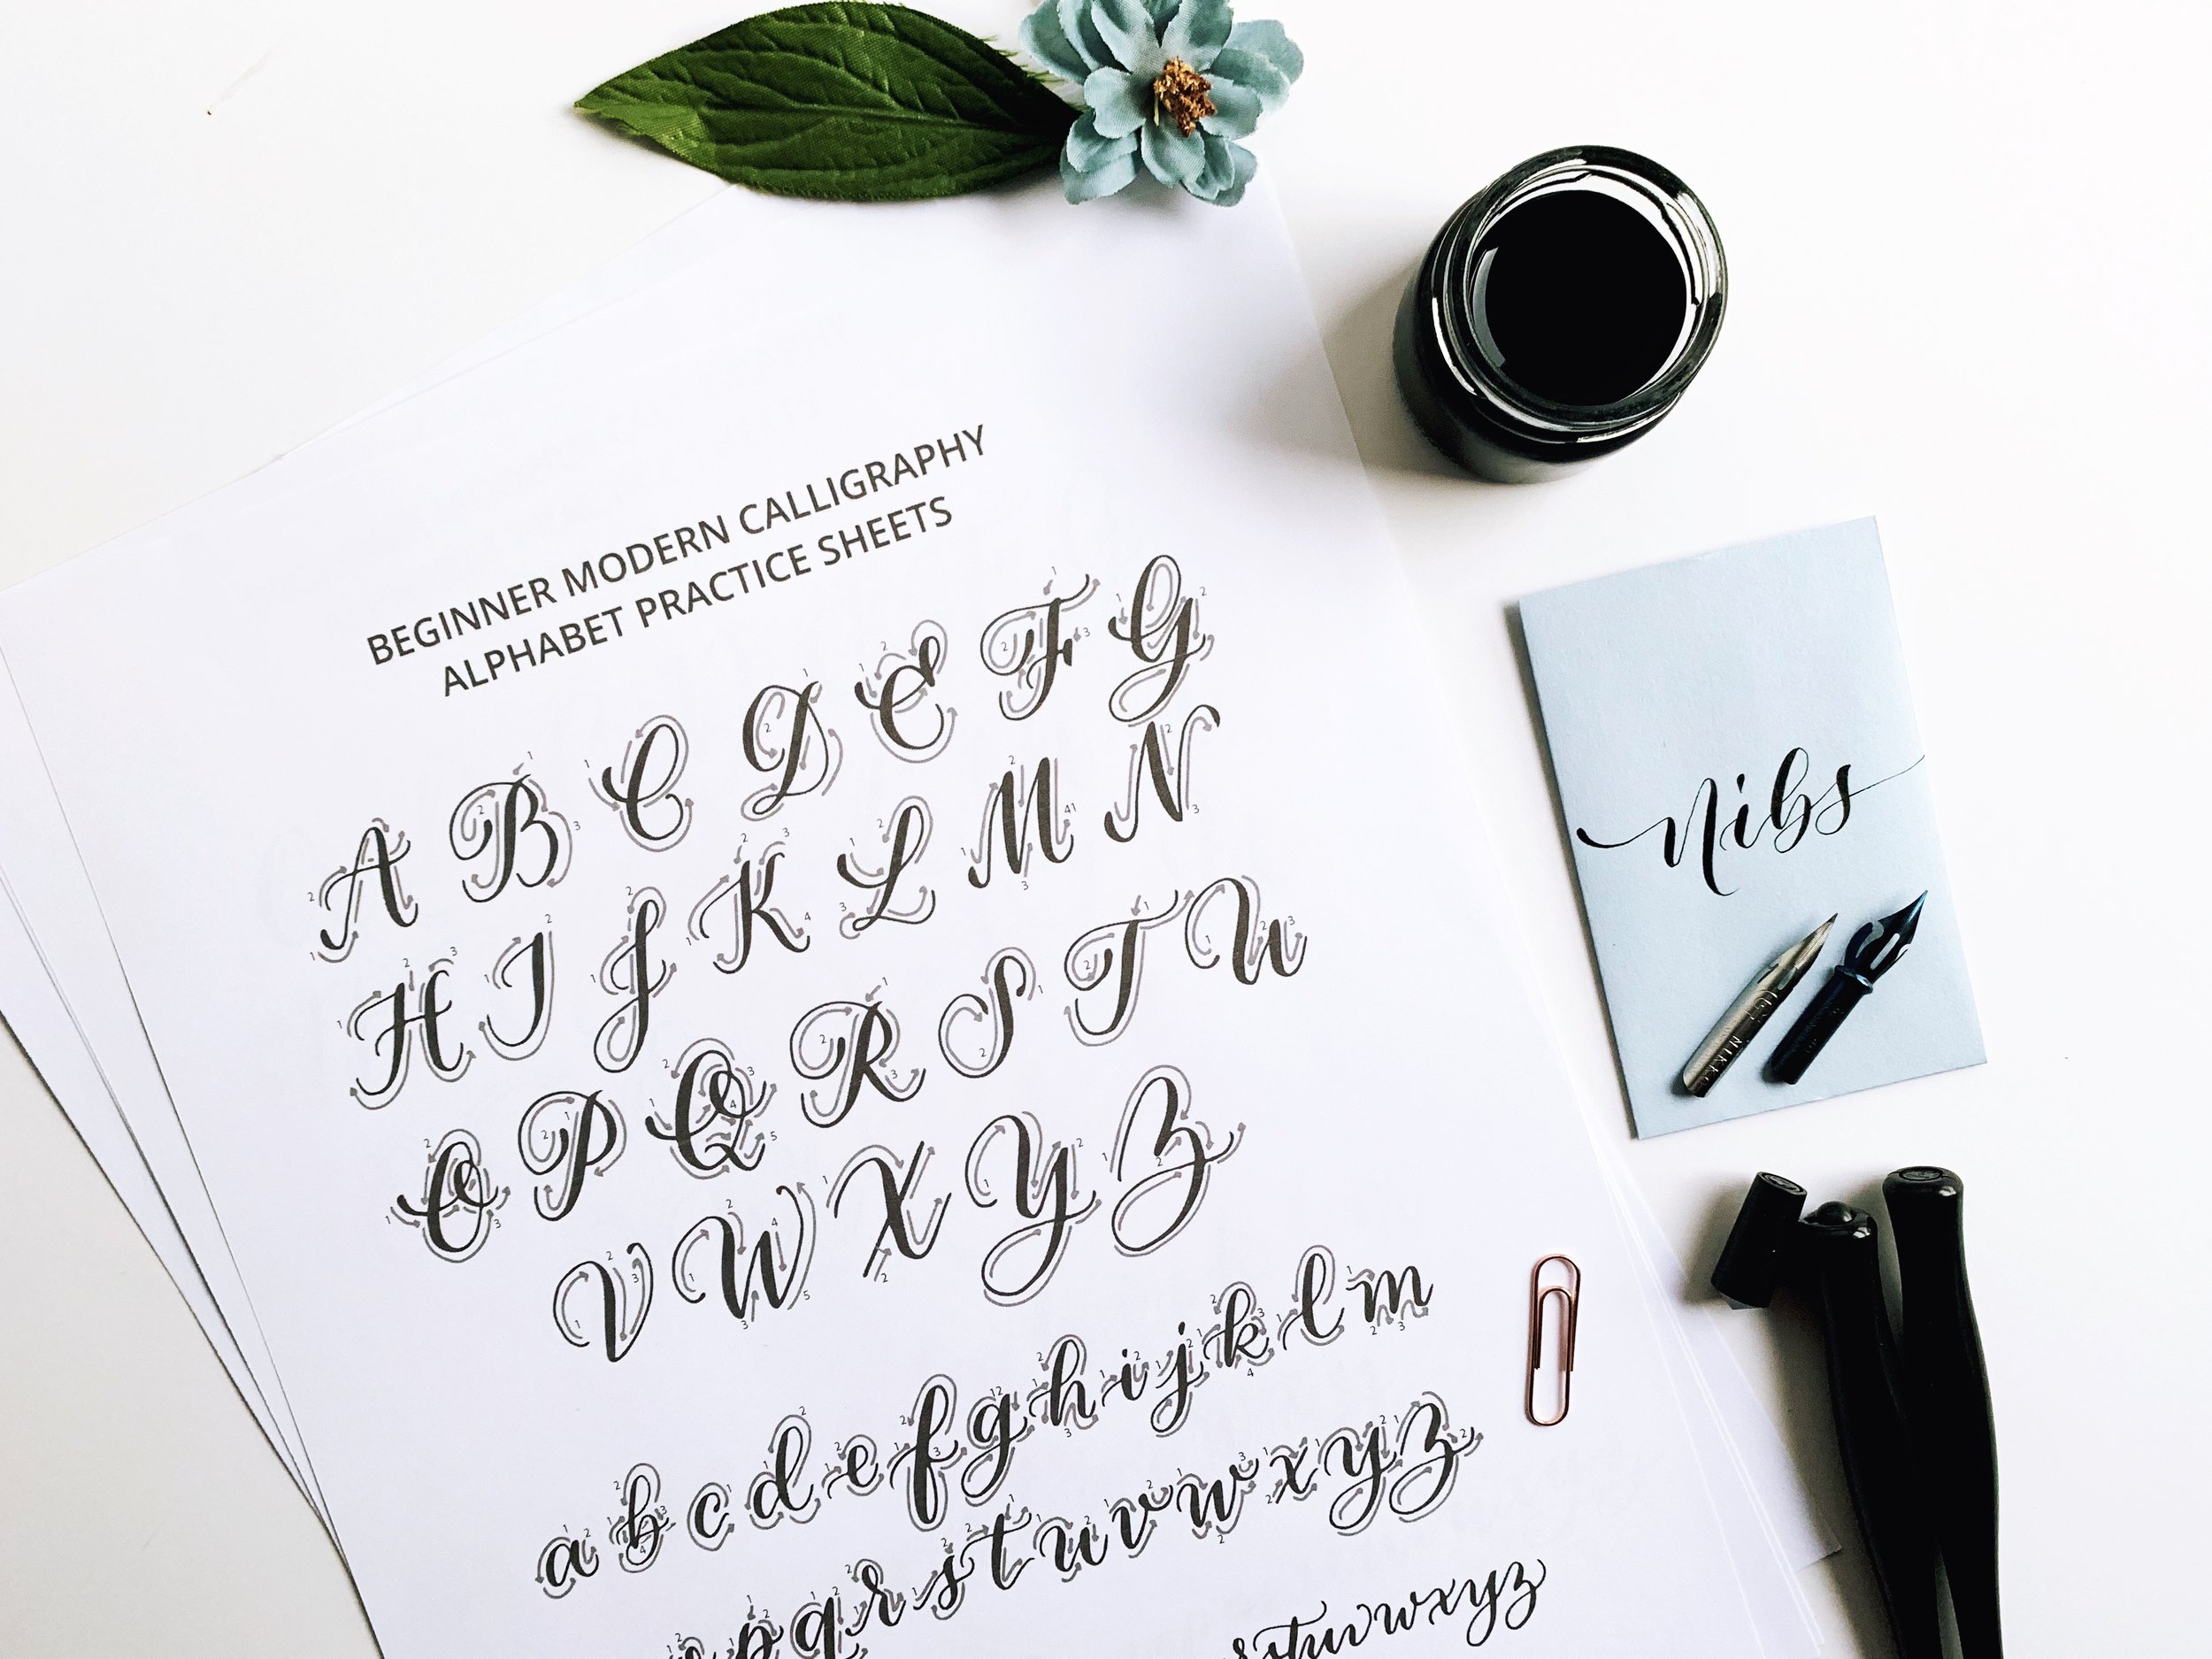 BEGINNER MODERN CALLIGRAPHY
ALPHABET PRACTICE SHEETS
A B C D E F G
H I J K L M N
O P Q R S T U
V W X Y Z
a b c d e f g h i j k l m
p q r s t u v w x y z
stuvwxyz
Nibs
NIKKO